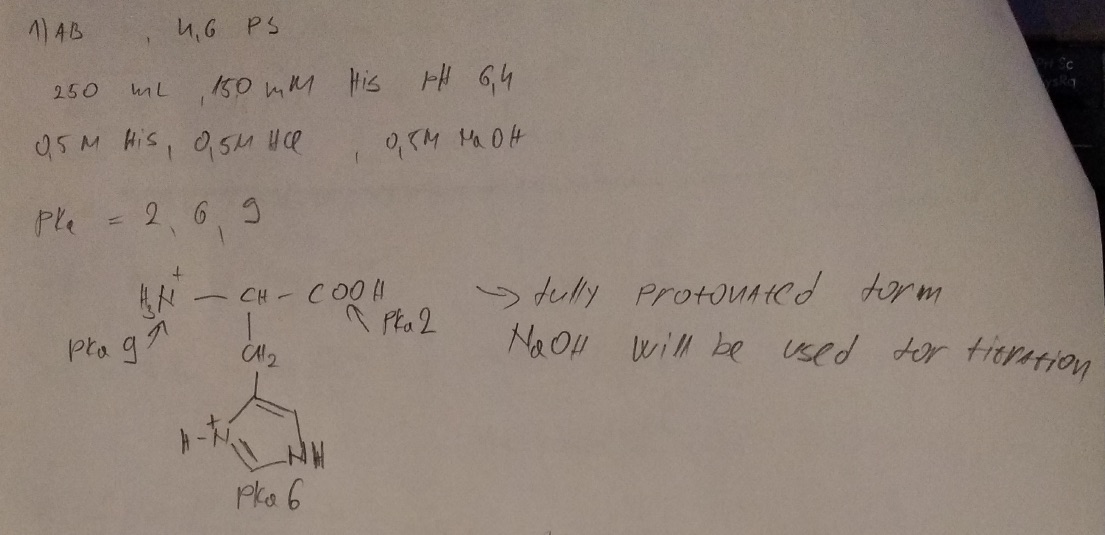 1) AB , 4,6 PS
250 mL , 150 mM His pH 6,4
0,5 M His, 0,5M HCl , 0,5M NaOH
pKa = 2, 6, 9
H₃N⁺ — CH - COOH → fully protonated form
pKa 9 pKa 2 NaOH will be used for titration
CH₂
H-N⁺ NH
pKa 6